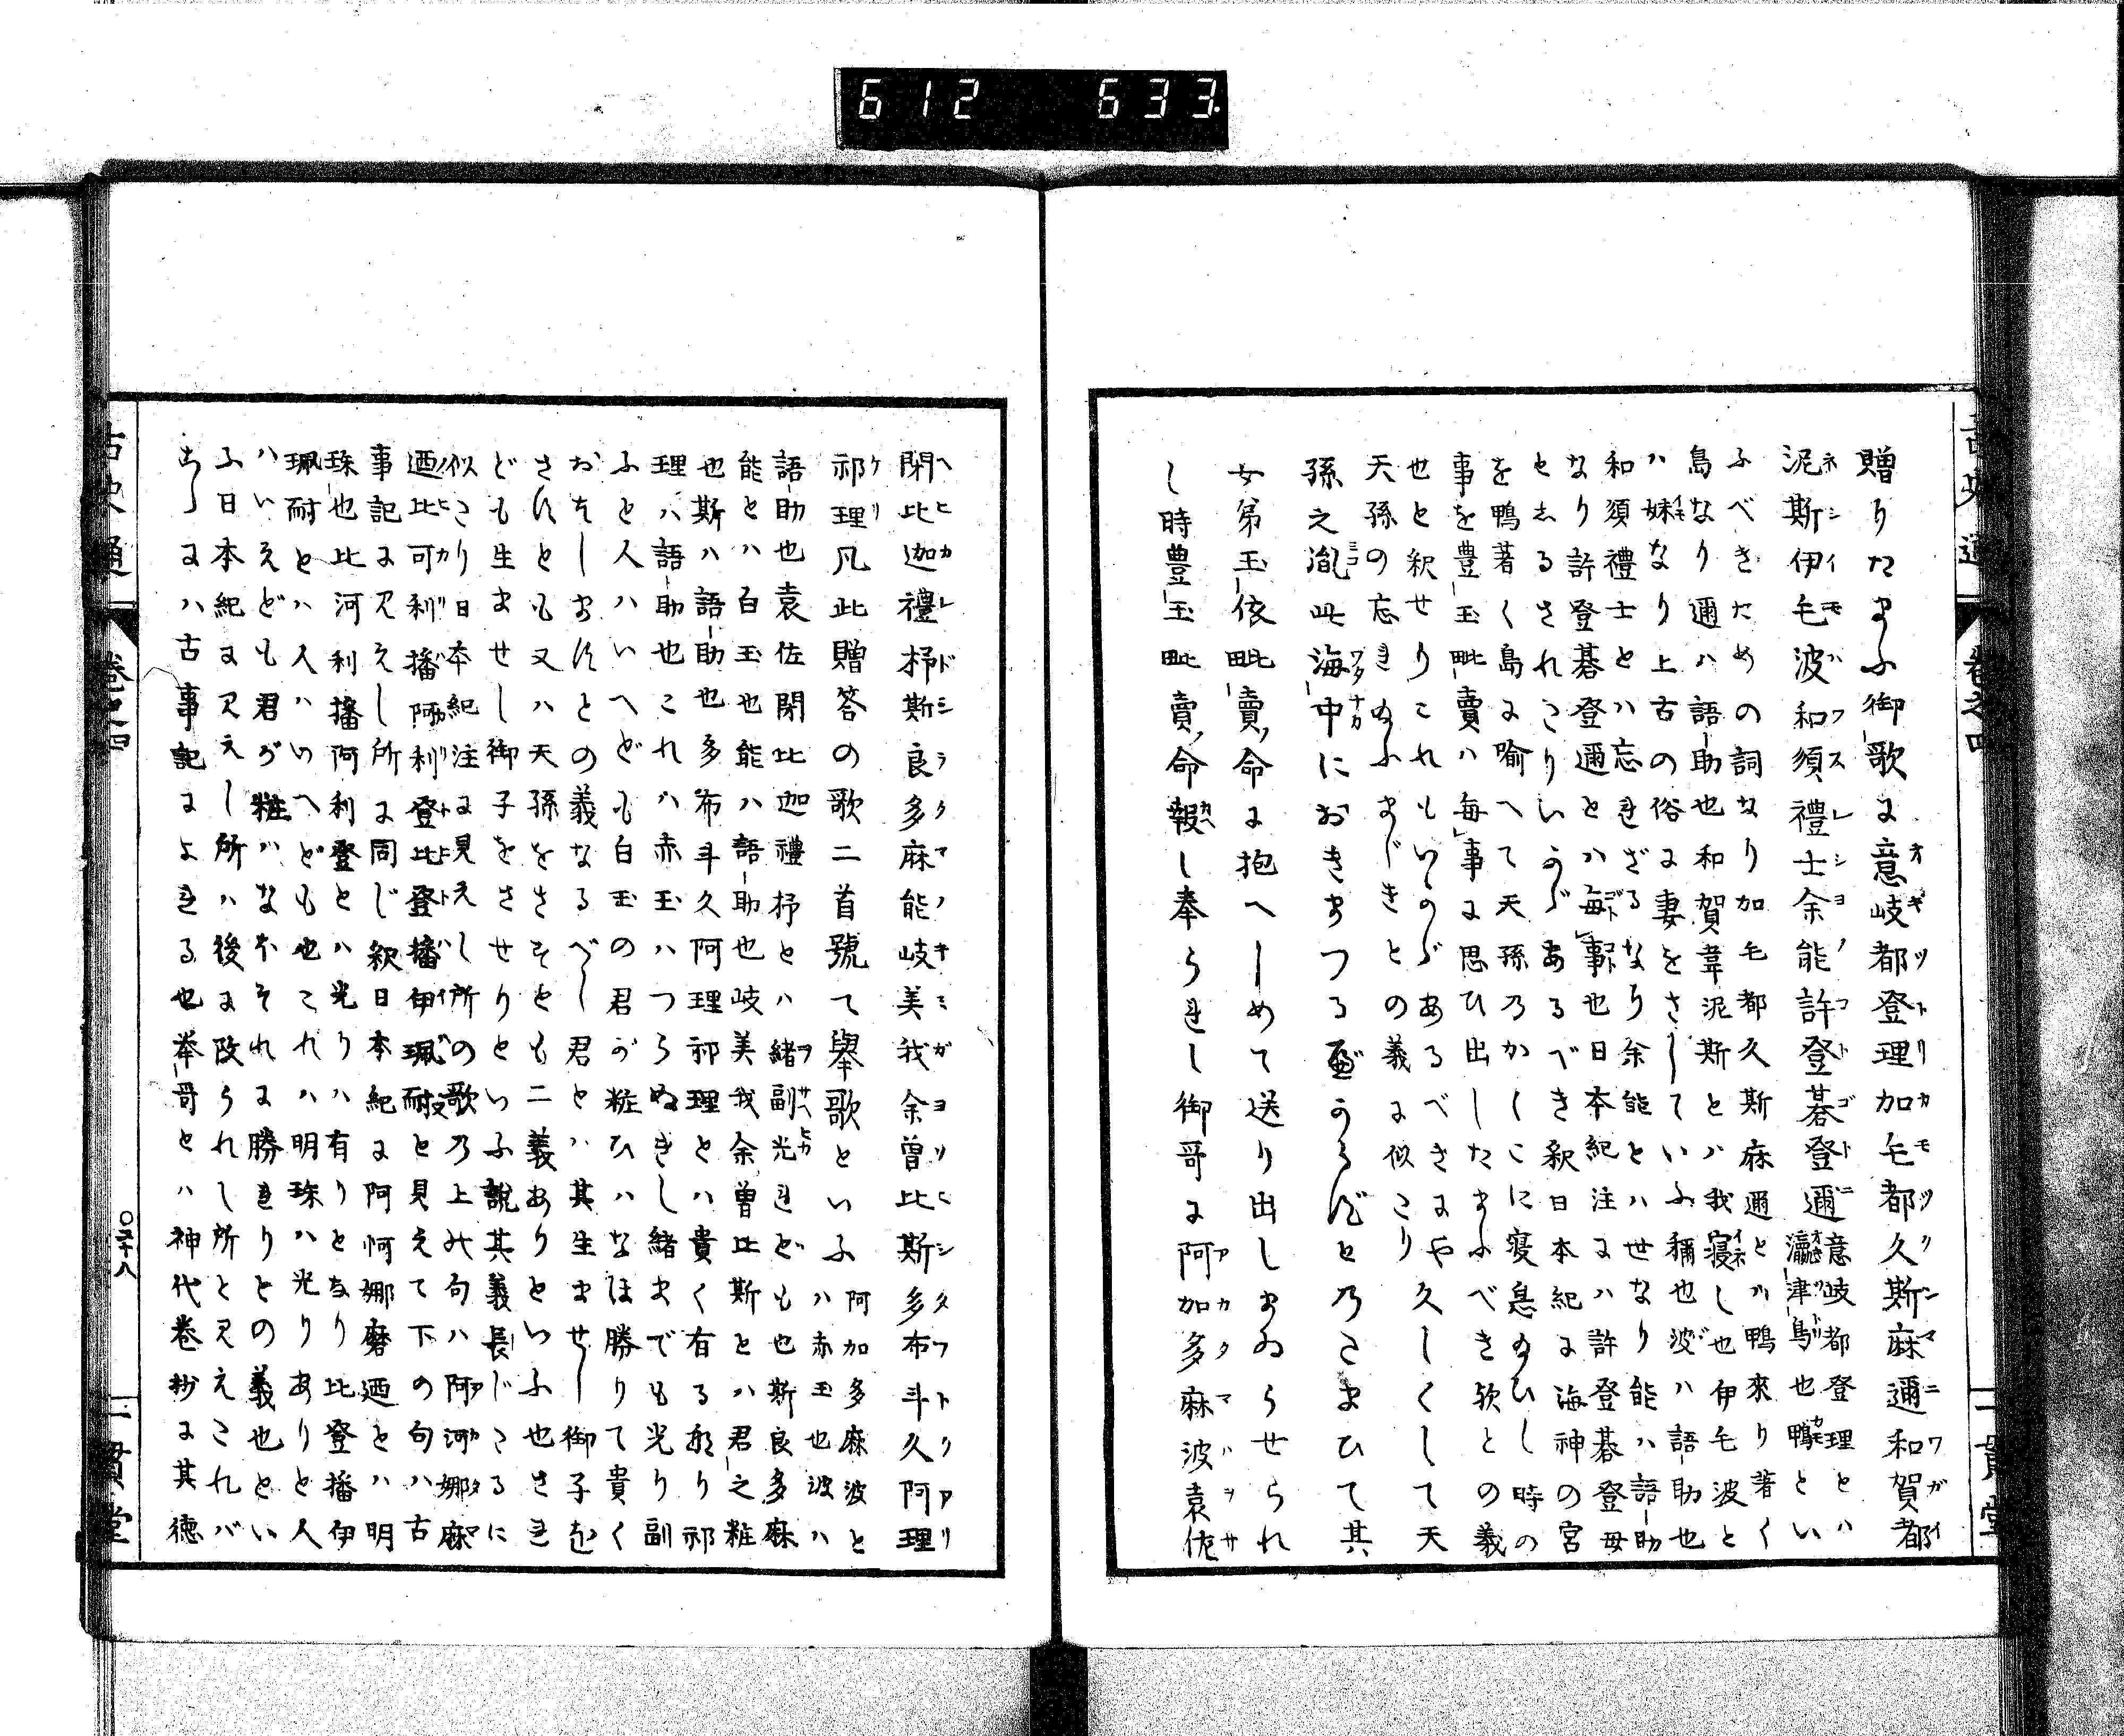 612 633
贈りたまふ御歌に意岐都登理加毛都久斯麻邇和賀韋
泥斯伊毛波和須禮士余能許登碁登邇
意岐都登理とハ
瀛津鳥也鴨とい
ふべきための詞なり加毛都久斯麻邇とハ鴨來り著く
島なり邇ハ語助也和賀韋泥斯とハ我寝し也伊毛波と
ハ妹なり上古の俗に妻をさしていふ稱也波ハ語助也
和須禮士とハ忘れざるなり余能とハせなり能ハ語助
なり許登碁登邇とハ毎事也日本紀注にハ許登碁登母
としるされたりいかゞあるべき釈日本紀に海神の宮
を鴨著く島に喩へて天孫乃かしこに寝息給ひし時の
事を豊玉毗賣ハ毎事に思ひ出したまふべき歟との義
也と釈せりこれもいかゞあるべきにや久しくして天
天孫の忘れ給ふまじきとの義に似たり
孫之胤此海中におきまつる べからずとのたまひて其
女弟玉依毗賣命に抱へしめて送り出しまゐらせられ
し時豊玉毗賣命報し奉られし御哥に阿加多麻波袁佐
閇比迦禮杼斯良多麻能岐美我余曾比斯多布斗久阿理
祁理凡此贈答の歌二首號て擧歌といふ
阿加多麻波と
ハ赤玉也波ハ
語助也袁佐閇比迦禮杼とハ緒副光れども也斯良多麻
能とハ白玉也能ハ語助也岐美我余曾比斯とハ君之粧
也斯ハ語助也多布斗久阿理祁理とハ貴く有る那り祁
理ハ語助也これハ赤玉ハつらぬきし緒までも光り副
ふと人ハいへども白玉の君が粧ひハなほ勝りて貴く
おはしますとの義なるべし君とハ其生ませし御子を
さすとも又ハ天孫をさすとも二義ありといふ也され
ども生ませし御子をさせりといふ說其義長じたるに
似たり日本紀注に見えし所の歌乃上の句ハ阿河娜麻
迺比可利播阿利登比登播伊珮耐と見えて下の句ハ古
事記に見えし所に同じ釈日本紀に阿河娜磨迺とハ明
珠也比河利播阿利登とハ光りハ有りとなり比登播伊
珮耐とハ人ハいへども也これハ明珠ハ光りありと人
ハいえども君が粧ハなほそれに勝れりとの義也とい
ふ日本紀に見えし所ハ後に改られし所と見えこれバ
こゝにハ古事記によれる也挙哥とハ神代巻抄に其徳
古史通
卷之四
〇三十八
一貫堂
古史通
卷之四
一貫堂